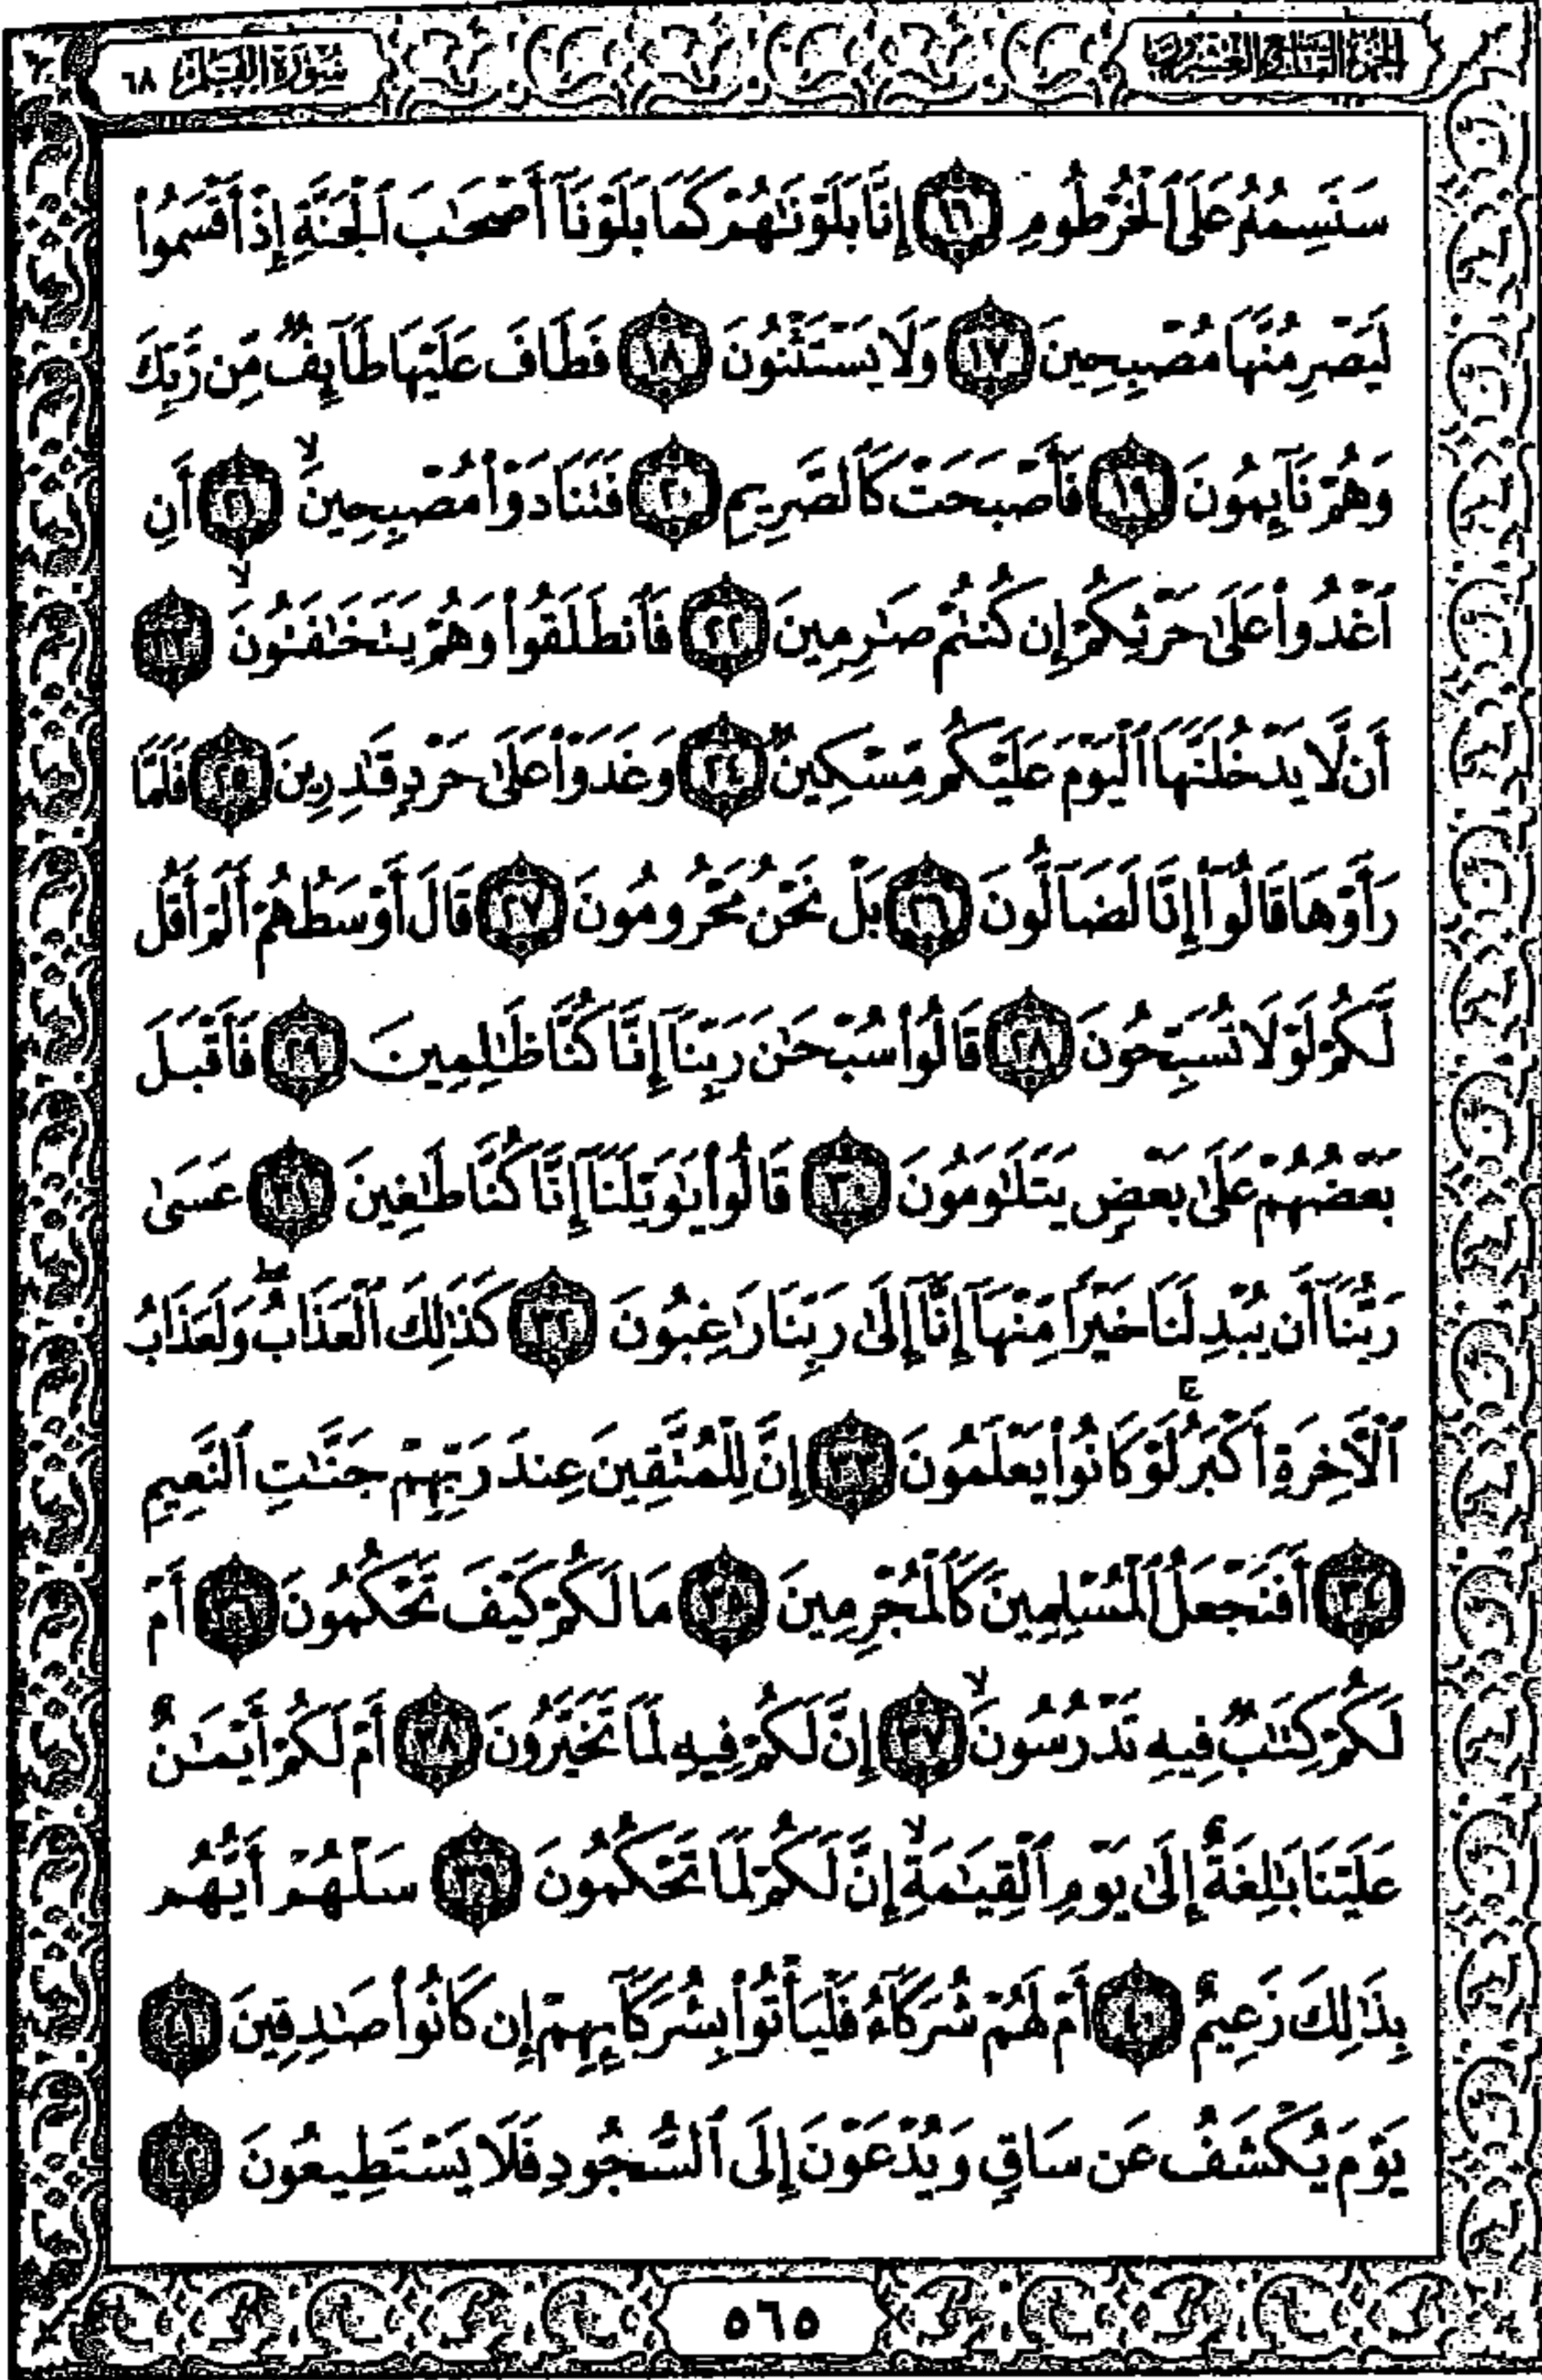 الجزء التاسع والعشرون
سورة القلم ٦٨
سَنَسِمُهُۥ عَلَى ٱلْخُرْطُومِ ١٦ إِنَّا بَلَوْنَٰهُمْ كَمَا بَلَوْنَآ أَصْحَٰبَ ٱلْجَنَّةِ إِذْ أَقْسَمُوا۟
لَيَصْرِمُنَّهَا مُصْبِحِينَ ١٧ وَلَا يَسْتَثْنُونَ ١٨ فَطَافَ عَلَيْهَا طَآئِفٌ مِّن رَّبِّكَ
وَهُمْ نَآئِمُونَ ١٩ فَأَصْبَحَتْ كَٱلصَّرِيمِ ٢٠ فَتَنَادَوْا۟ مُصْبِحِينَ ۙ ٢١ أَنِ
ٱغْدُوا۟ عَلَىٰ حَرْثِكُمْ إِن كُنتُمْ صَٰرِمِينَ ٢٢ فَٱنطَلَقُوا۟ وَهُمْ يَتَخَٰفَتُونَ ۙ ٢٣
أَن لَّا يَدْخُلَنَّهَا ٱلْيَوْمَ عَلَيْكُم مِّسْكِينٌ ٢٤ وَغَدَوْا۟ عَلَىٰ حَرْدٍ قَٰدِرِينَ ٢٥ فَلَمَّا
رَأَوْهَا قَالُوٓا۟ إِنَّا لَضَآلُّونَ ٢٦ بَلْ نَحْنُ مَحْرُومُونَ ٢٧ قَالَ أَوْسَطُهُمْ أَلَمْ أَقُل
لَّكُمْ لَوْلَا تُسَبِّحُونَ ٢٨ قَالُوا۟ سُبْحَٰنَ رَبِّنَآ إِنَّا كُنَّا ظَٰلِمِينَ ٢٩ فَأَقْبَلَ
بَعْضُهُمْ عَلَىٰ بَعْضٍ يَتَلَٰوَمُونَ ٣٠ قَالُوا۟ يَٰوَيْلَنَآ إِنَّا كُنَّا طَٰغِينَ ٣١ عَسَىٰ
رَبُّنَآ أَن يُبْدِلَنَا خَيْرًا مِّنْهَآ إِنَّآ إِلَىٰ رَبِّنَا رَٰغِبُونَ ٣٢ كَذَٰلِكَ ٱلْعَذَابُ ۖ وَلَعَذَابُ
ٱلْءَاخِرَةِ أَكْبَرُ ۚ لَوْ كَانُوا۟ يَعْلَمُونَ ٣٣ إِنَّ لِلْمُتَّقِينَ عِندَ رَبِّهِمْ جَنَّٰتِ ٱلنَّعِيمِ
٣٤ أَفَنَجْعَلُ ٱلْمُسْلِمِينَ كَٱلْمُجْرِمِينَ ٣٥ مَا لَكُمْ كَيْفَ تَحْكُمُونَ ٣٦ أَمْ
لَكُمْ كِتَٰبٌ فِيهِ تَدْرُسُونَ ۙ ٣٧ إِنَّ لَكُمْ فِيهِ لَمَا تَخَيَّرُونَ ٣٨ أَمْ لَكُمْ أَيْمَٰنٌ
عَلَيْنَا بَٰلِغَةٌ إِلَىٰ يَوْمِ ٱلْقِيَٰمَةِ ۙ إِنَّ لَكُمْ لَمَا تَحْكُمُونَ ٣٩ سَلْهُمْ أَيُّهُم
بِذَٰلِكَ زَعِيمٌ ٤٠ أَمْ لَهُمْ شُرَكَآءُ فَلْيَأْتُوا۟ بِشُرَكَآئِهِمْ إِن كَانُوا۟ صَٰدِقِينَ ٤١
يَوْمَ يُكْشَفُ عَن سَاقٍ وَيُدْعَوْنَ إِلَى ٱلسُّجُودِ فَلَا يَسْتَطِيعُونَ ٤٢
٥٦٥